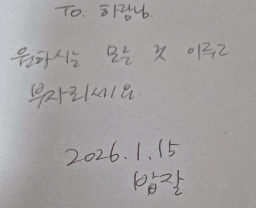 To. 하랑님.
원하시는 모든 것 이루고
부자되세요.
2026.1.15
밥잘